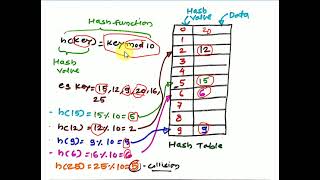 Hash function
Hash Value
Data
h(key) = key mod 10
Hash Value
eg key = 15, 12, 9, 20, 16, 25
- h(15) = 15 % 10 = 5
- h(12) = 12 % 10 = 2
- h(9) = 9 % 10 = 9
- h(6) = 16 % 10 = 6
h(25) = 25 % 10 = 5 - collision
0 20
1
2 12
3
4
5 15
6 6
7
8
9 9
Hash Table